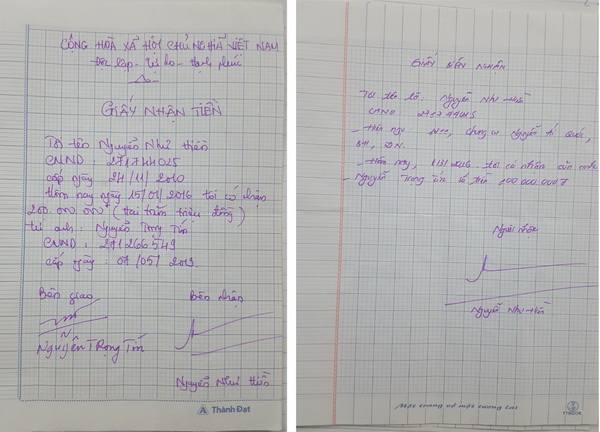 CỘNG HOÀ XÃ HỘI CHỦ NGHĨA VIỆT NAM
Độc lập - Tự do - Hạnh phúc
GIẤY NHẬN TIỀN
Tôi tên Nguyễn Như Hiền
CMND : 271744025
cấp ngày 24/11/2010
Hôm nay ngày 15/01/2016 tôi có nhận
200.000.000đ (hai trăm triệu đồng)
từ anh : Nguyễn Trọng Tín
CMND : 271266549
cấp ngày : 07/05/2013.
Bên giao
bên nhận
Nguyễn Trọng Tín
Nguyễn Như Hiền
Thành Đạt
GIẤY BIÊN NHẬN
Tôi tên là Nguyễn Như Hiền
CMND 271744025
Nguyễn Ái Quốc,
BH, ĐN.
Hôm nay, tôi có nhận của anh
Nguyễn Trọng Tín số tiền 100.000.000đ
Người nhận
Nguyễn Như Hiền